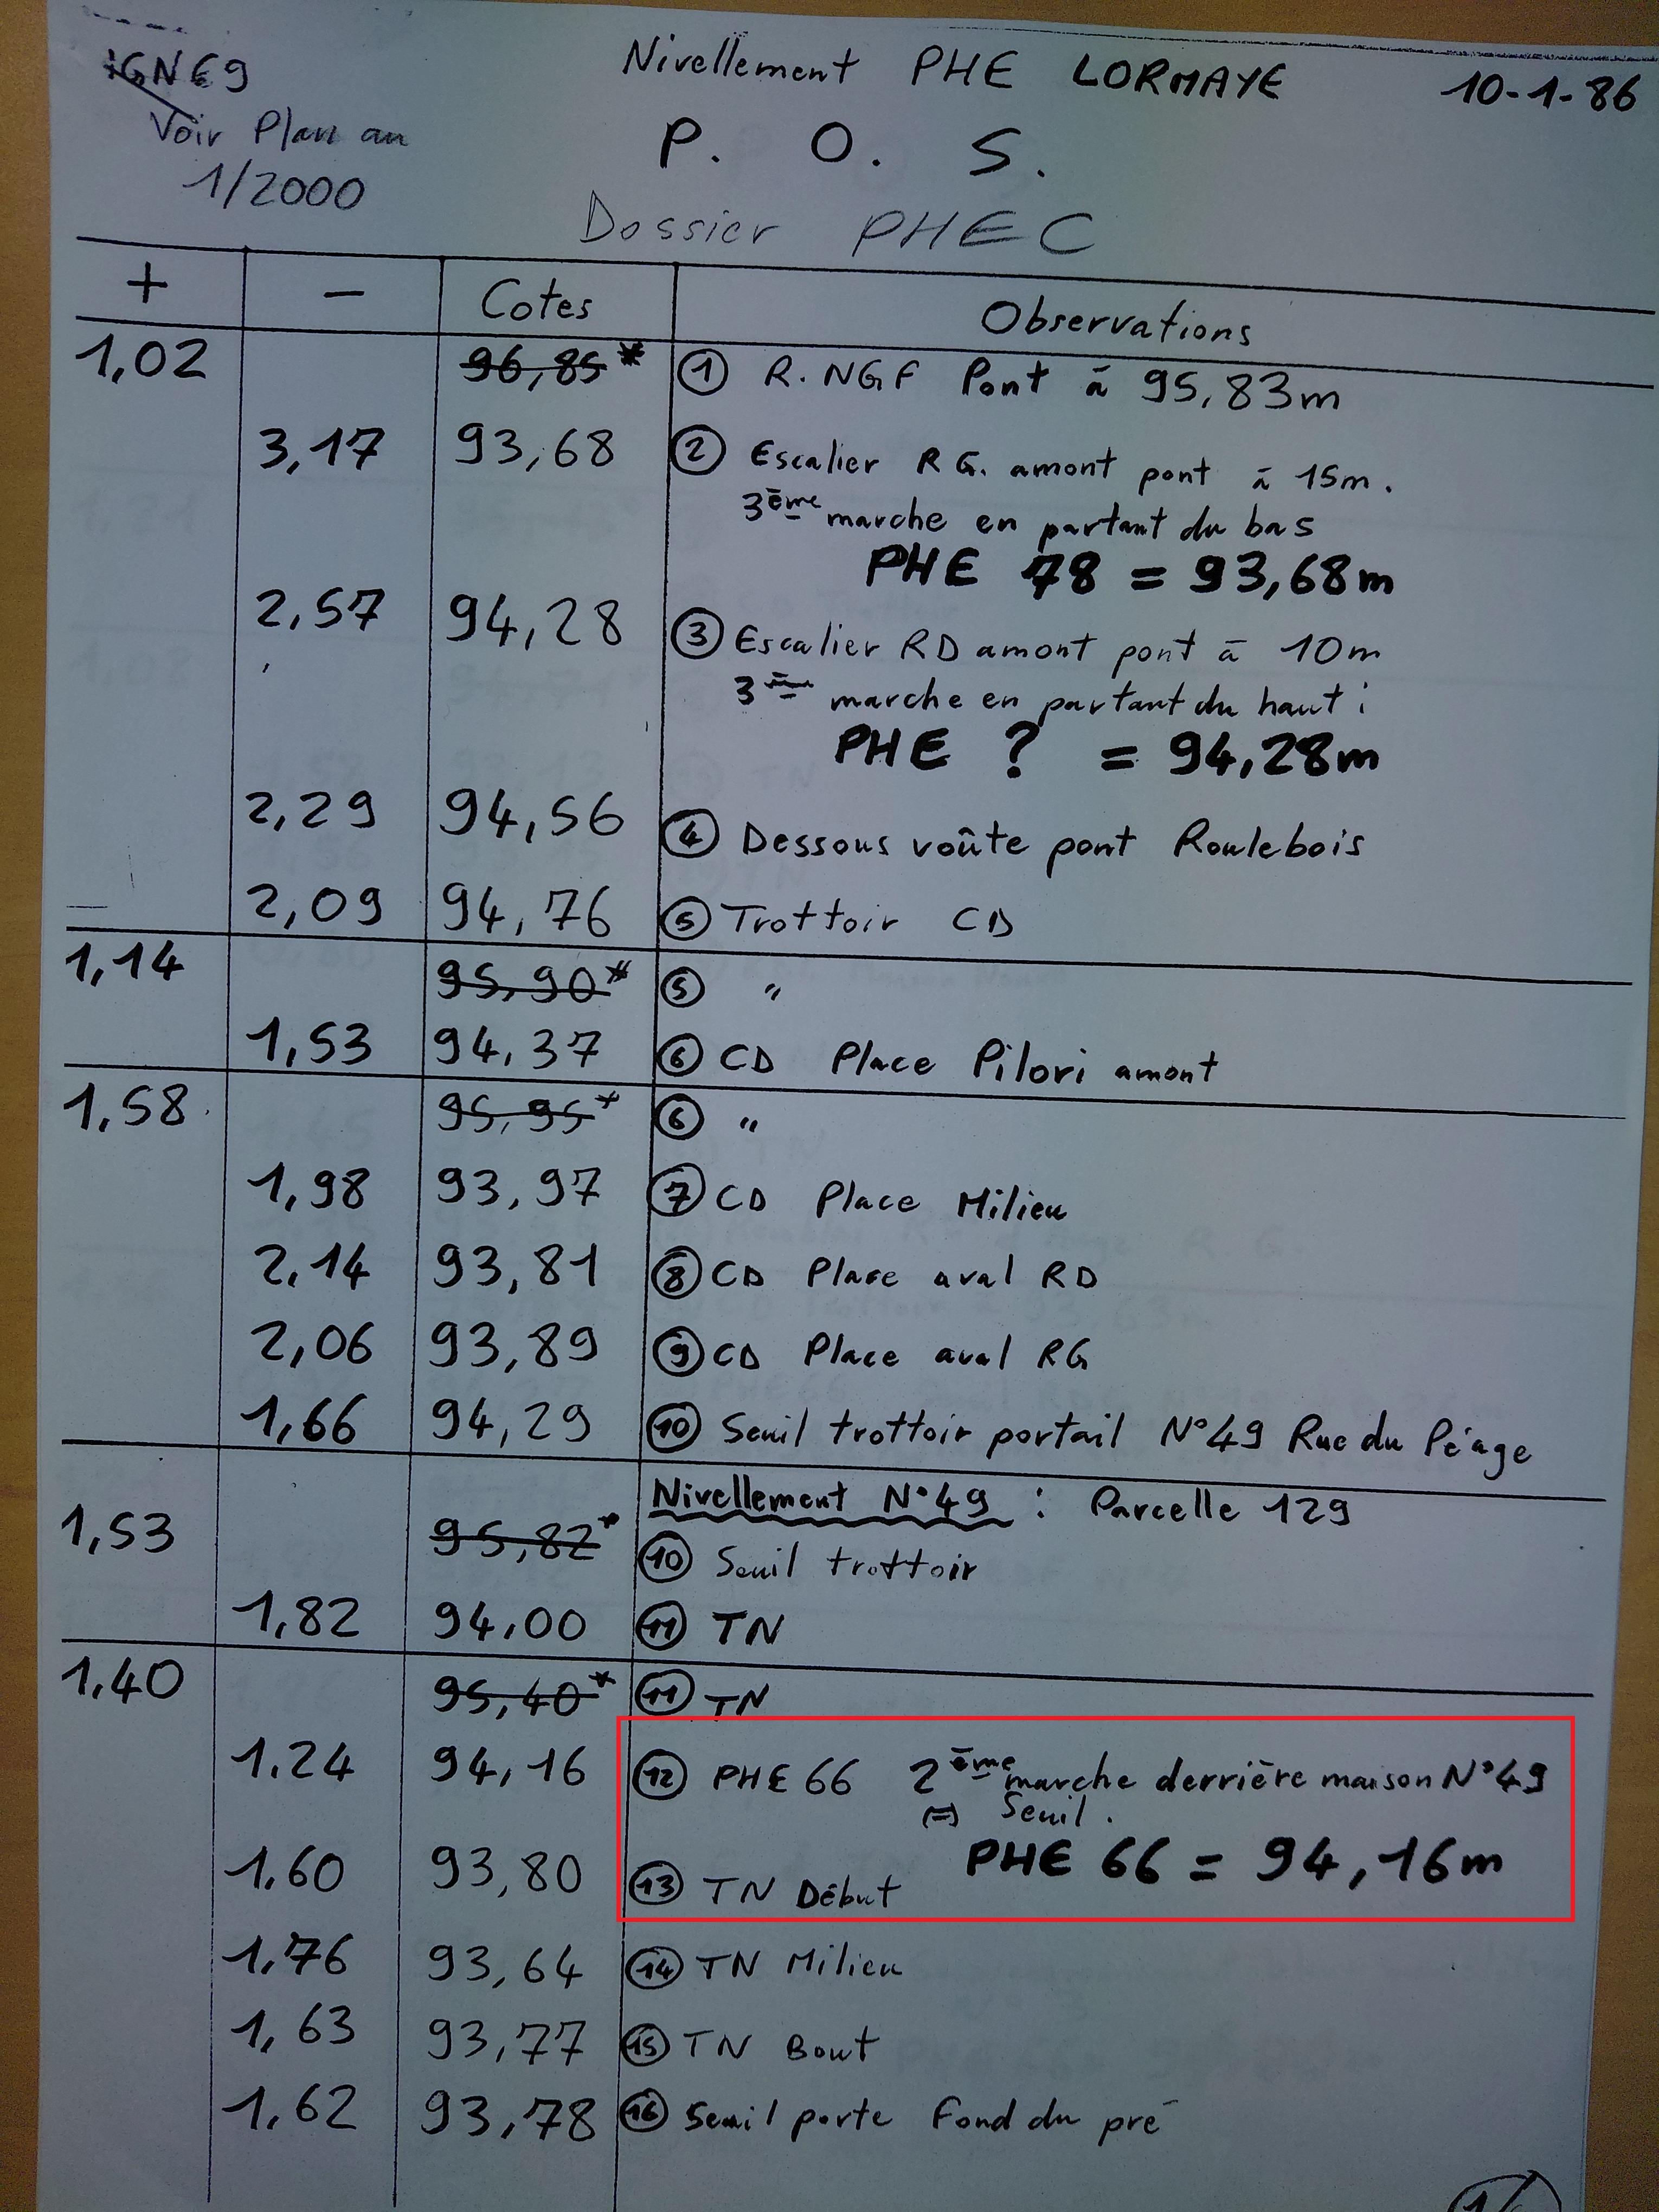 IGN 69
Nivellement PHE LORMAYE 10-1-86
Voir Plan au
1/2000
P. O. S.
Dossier PHEC
+ − Cotes Observations
1,02 96,85* ① R.NGF Pont à 95,83m
3,17 93,68 ② Escalier RG. amont pont à 15m.
3ème marche en partant du bas
PHE 78 = 93,68m
2,57 94,28 ③ Escalier RD amont pont à 10m
3ème marche en partant du haut :
PHE ? = 94,28m
2,29 94,56 ④ Dessous voûte pont Roulebois
2,09 94,76 ⑤ Trottoir CD
1,14 95,90* ⑤ "
1,53 94,37 ⑥ CD Place Pilori amont
1,58 95,95* ⑥ "
1,98 93,97 ⑦ CD Place Milieu
2,14 93,81 ⑧ CD Place aval RD
2,06 93,89 ⑨ CD Place aval RG
1,66 94,29 ⑩ Seuil trottoir portail N°49 Rue du Péage
Nivellement N°49 : Parcelle 129
1,53 95,82* ⑩ Seuil trottoir
1,82 94,00 ⑪ TN
1,40 95,40* ⑪ TN
1.24 94,16 ⑫ PHE 66 2ème marche derrière maison N°49
(=) Seuil.
PHE 66 = 94,16m
1.60 93,80 ⑬ TN Début
1,76 93,64 ⑭ TN Milieu
1,63 93,77 ⑮ TN Bout
1,62 93,78 ⑯ Seuil porte Fond du pré